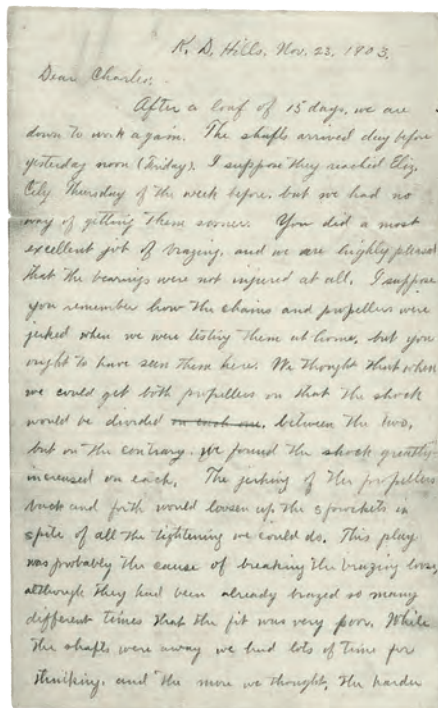 K. D. Hills, Nov. 23, 1903.
Dear Charles:
After a loaf of 15 days, we are
down to work again. The shafts arrived day before
yesterday noon (Friday). I suppose they reached Eliz.
City Thursday of the week before, but we had no
way of getting them sooner. You did a most
excellent job of brazing, and we are highly pleased
that the bearings were not injured at all. I suppose
you remember how the chains and propellers were
jerked when we were testing them at home, but you
ought to have seen them here. We thought that when
we could get both propellers on that the shock
would be divided on each one, between the two,
but on the contrary, we found the shock greatly
increased on each. The jerking of the propellers
back and forth would loosen up the sprockets in
spite of all the tightening we could do. This play
was probably the cause of breaking the brazing loose,
although they had been already brazed so many
different times that the fit was very poor. While
the shafts were away we had lots of time for
thinking, and the more we thought, the harder